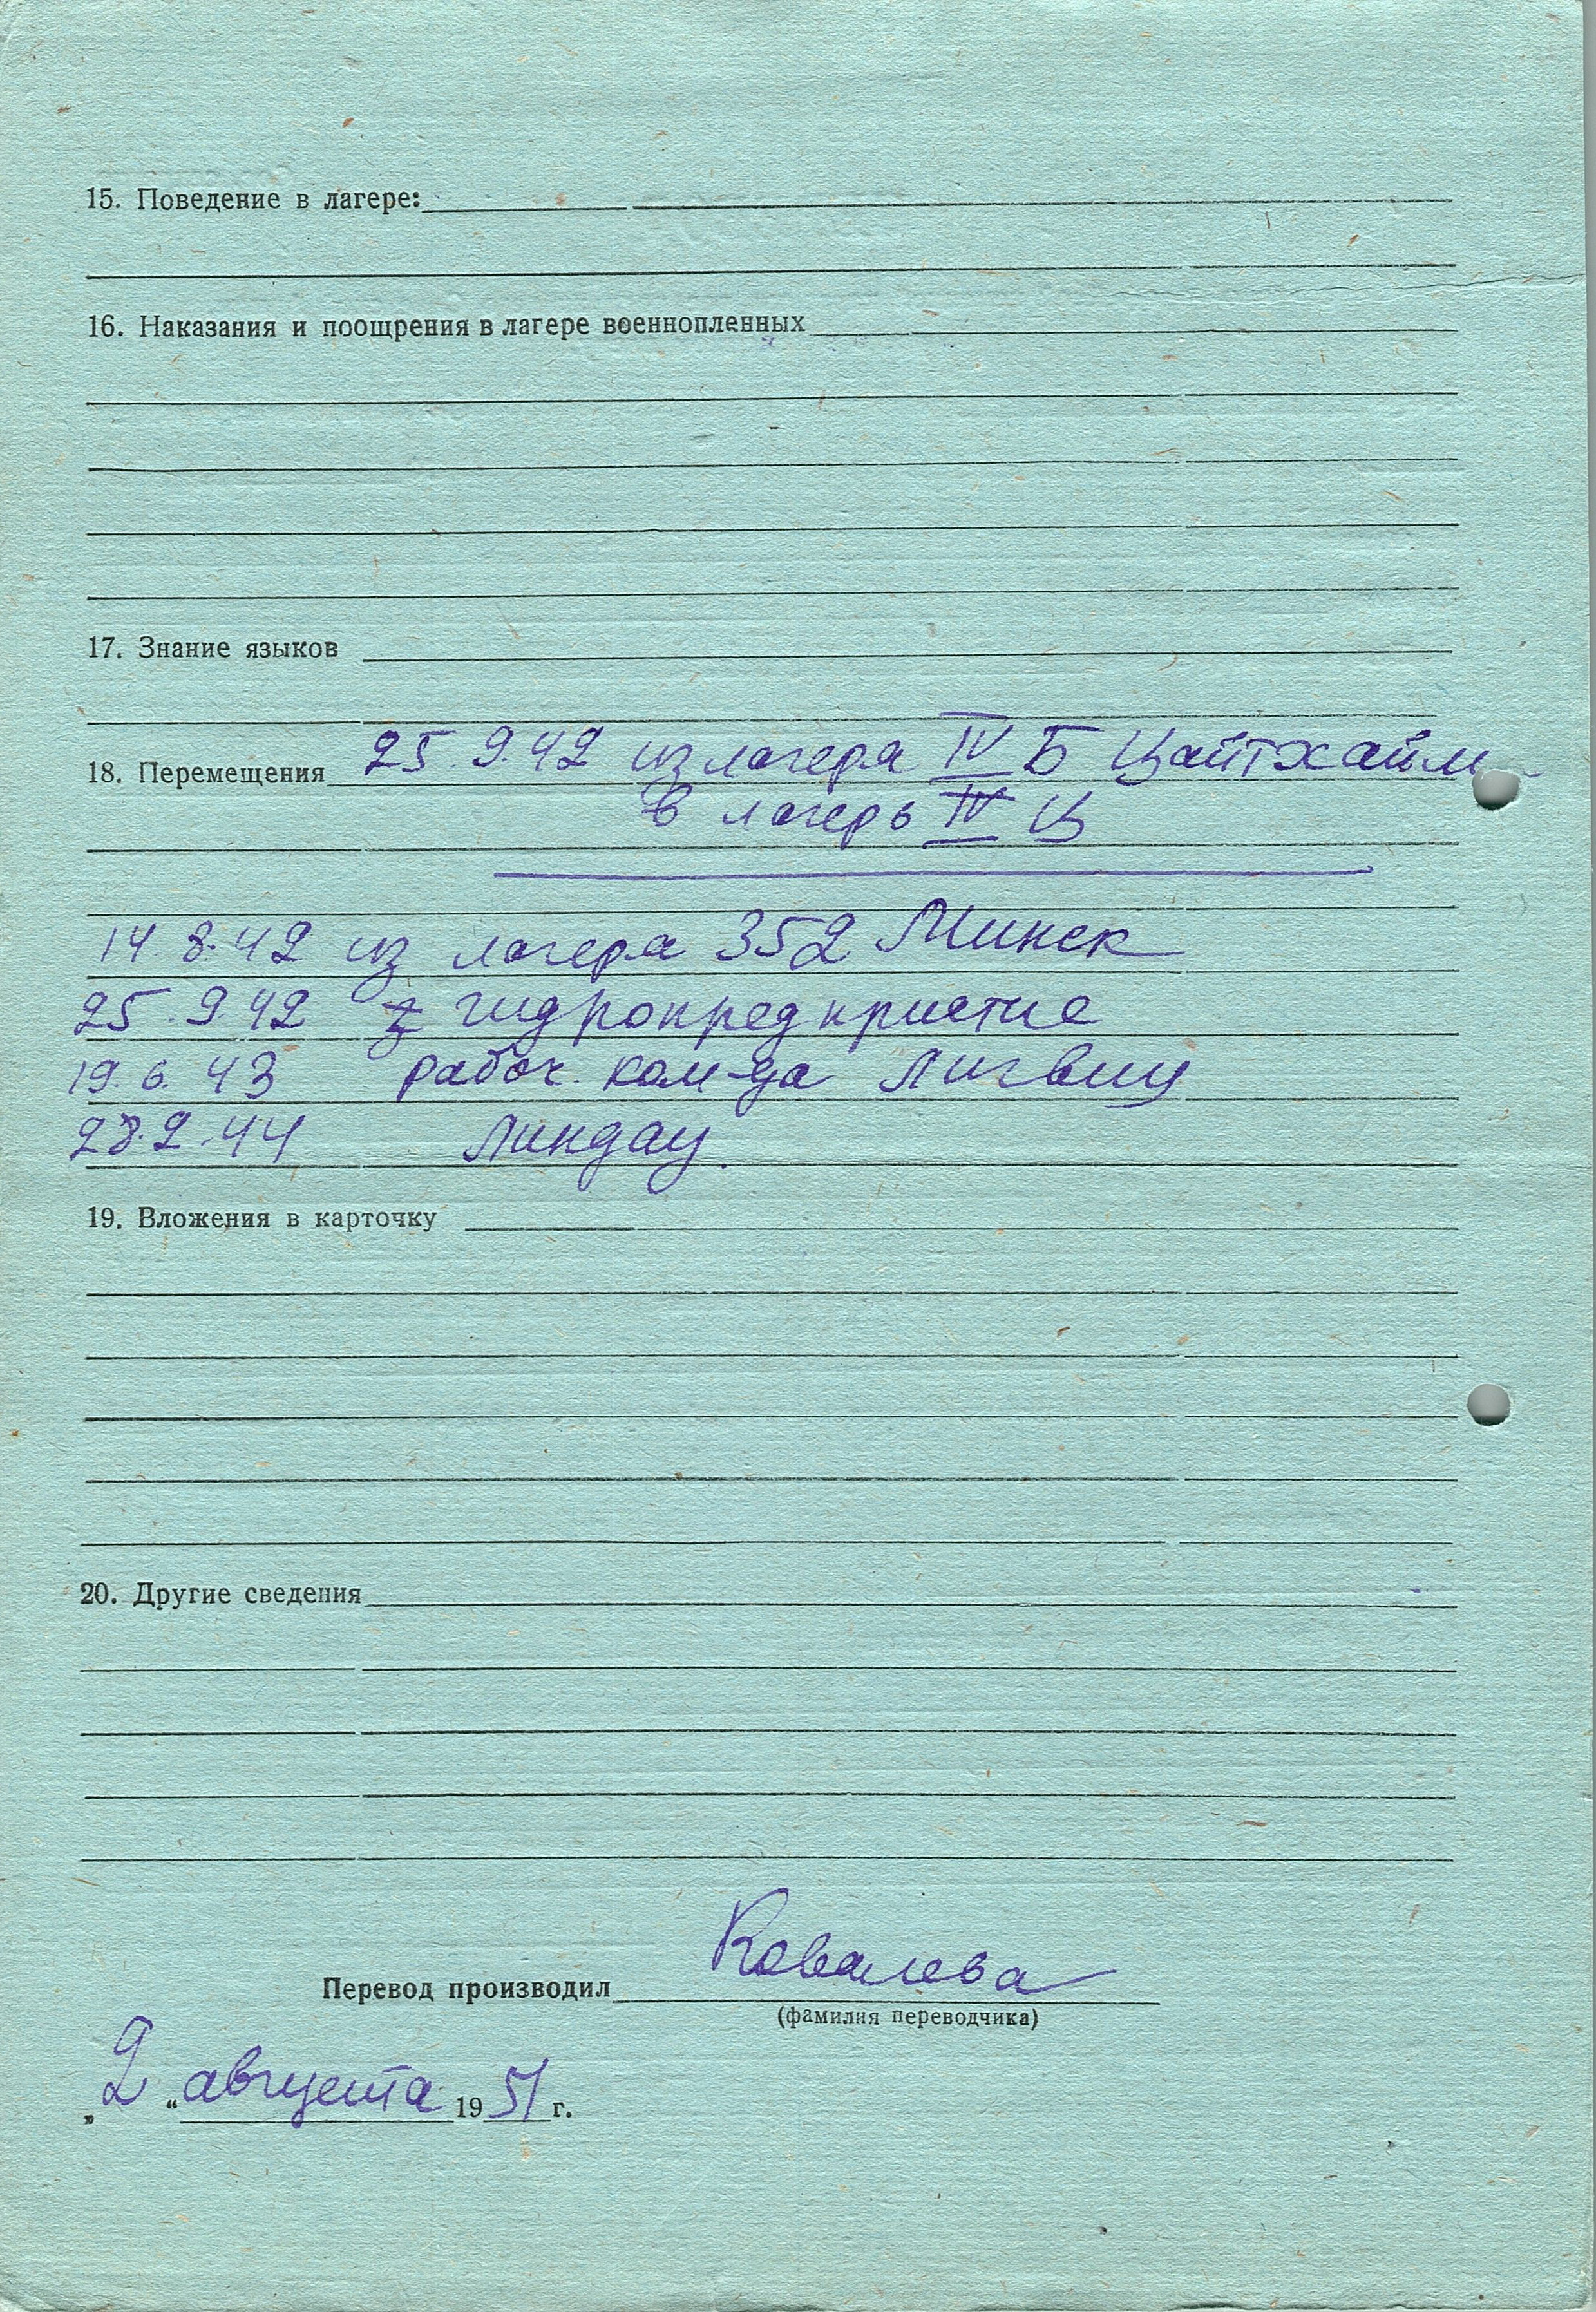 15. Поведение в лагере:
16. Наказания и поощрения в лагере военнопленных
17. Знание языков
18. Перемещения 25.9.42 из лагера IV Б Цайтхайм
в лагерь IV Ц
14.8.42 из лагера 352 Минск
25.9.42 гидропредприятие
19.6.43 рабоч. ком-да Лигвиц
28.2.44 Линдау.
19. Вложения в карточку
20. Другие сведения
Перевод производил Ковалева
(фамилия переводчика)
„2“ августа 1951 г.